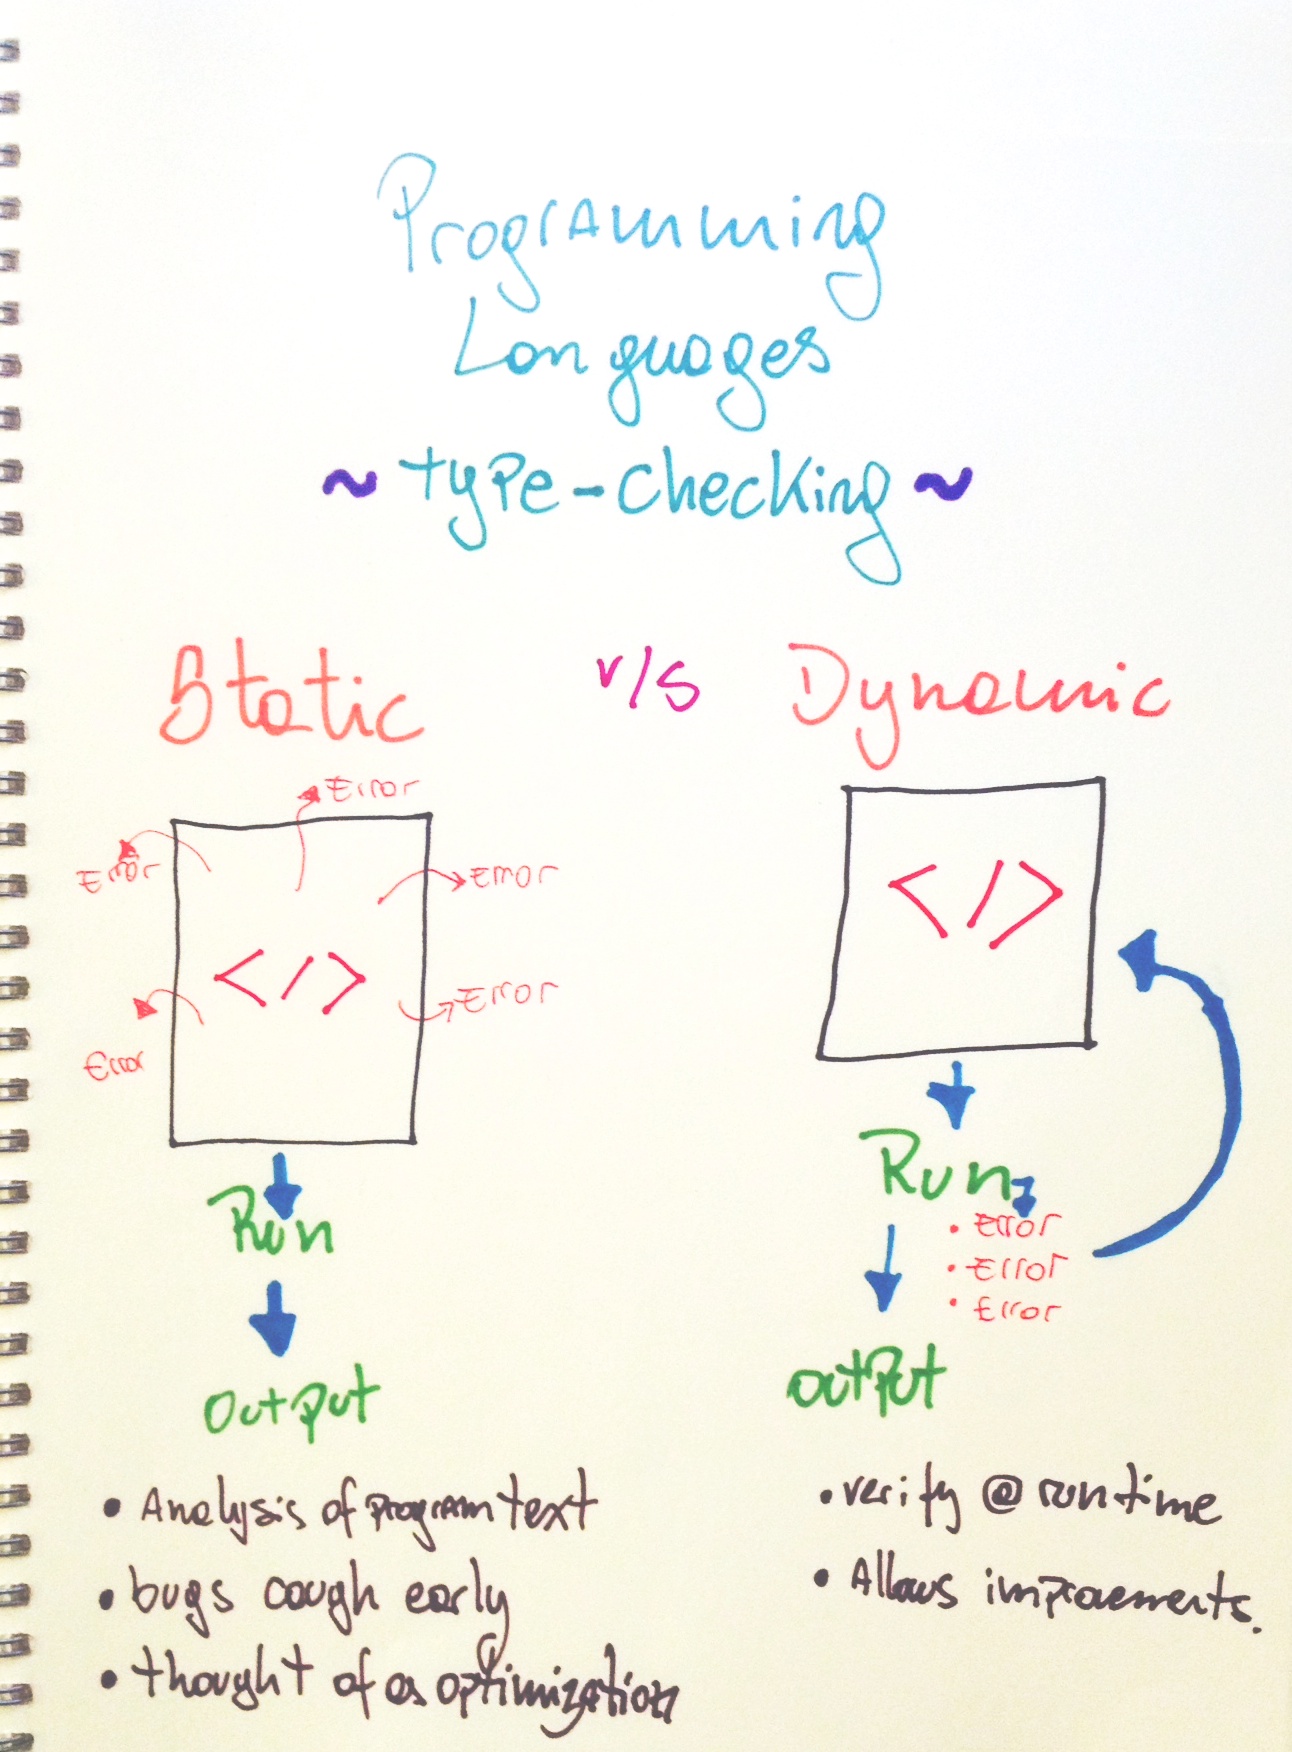 Programming
Languages
~ type-checking ~
Static v/s Dynamic
Error
Error
Error
</>
Error
Error
Run
Output
• Analysis of program text
• bugs cough early
• thought of as optimization
</>
Run
• Error
• Error
• Error
output
• verify @ runtime
• Allows improvements.